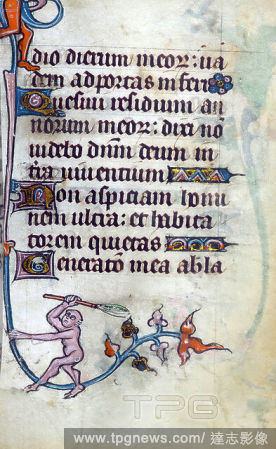 dio dierum meor̄: ua
dem ad portas inferi
Quesiui residium an
norum meor̄: dixi nō
uidebo dn̄m deum in
t̄ra uiuentium
Non aspiciam homi
nem ultra: et habita
torem quietas
Generatō mea abla
TPG
www.tpgnews.com/ 達志影像